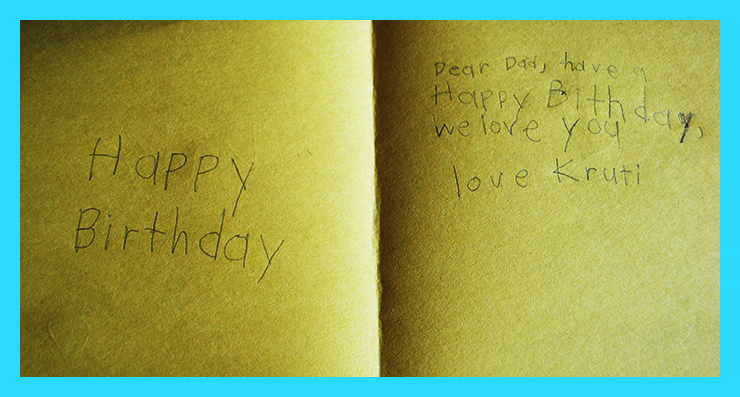 Happy
Birthday
Dear Dad, have a
Happy Bithday,
we love you
love Kruti